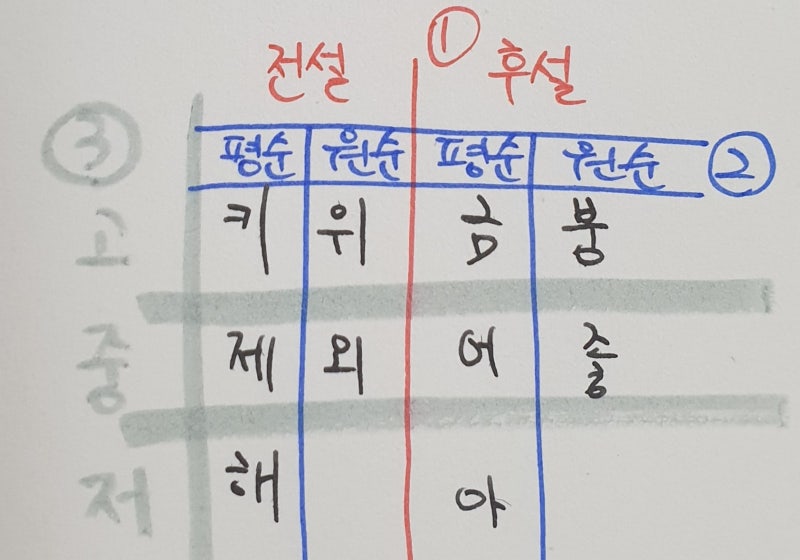 ① 
전설 후설
③ 평순 원순 평순 원순 ②
고 키 위 금 붐
중 제 외 어 좋
저 해 아